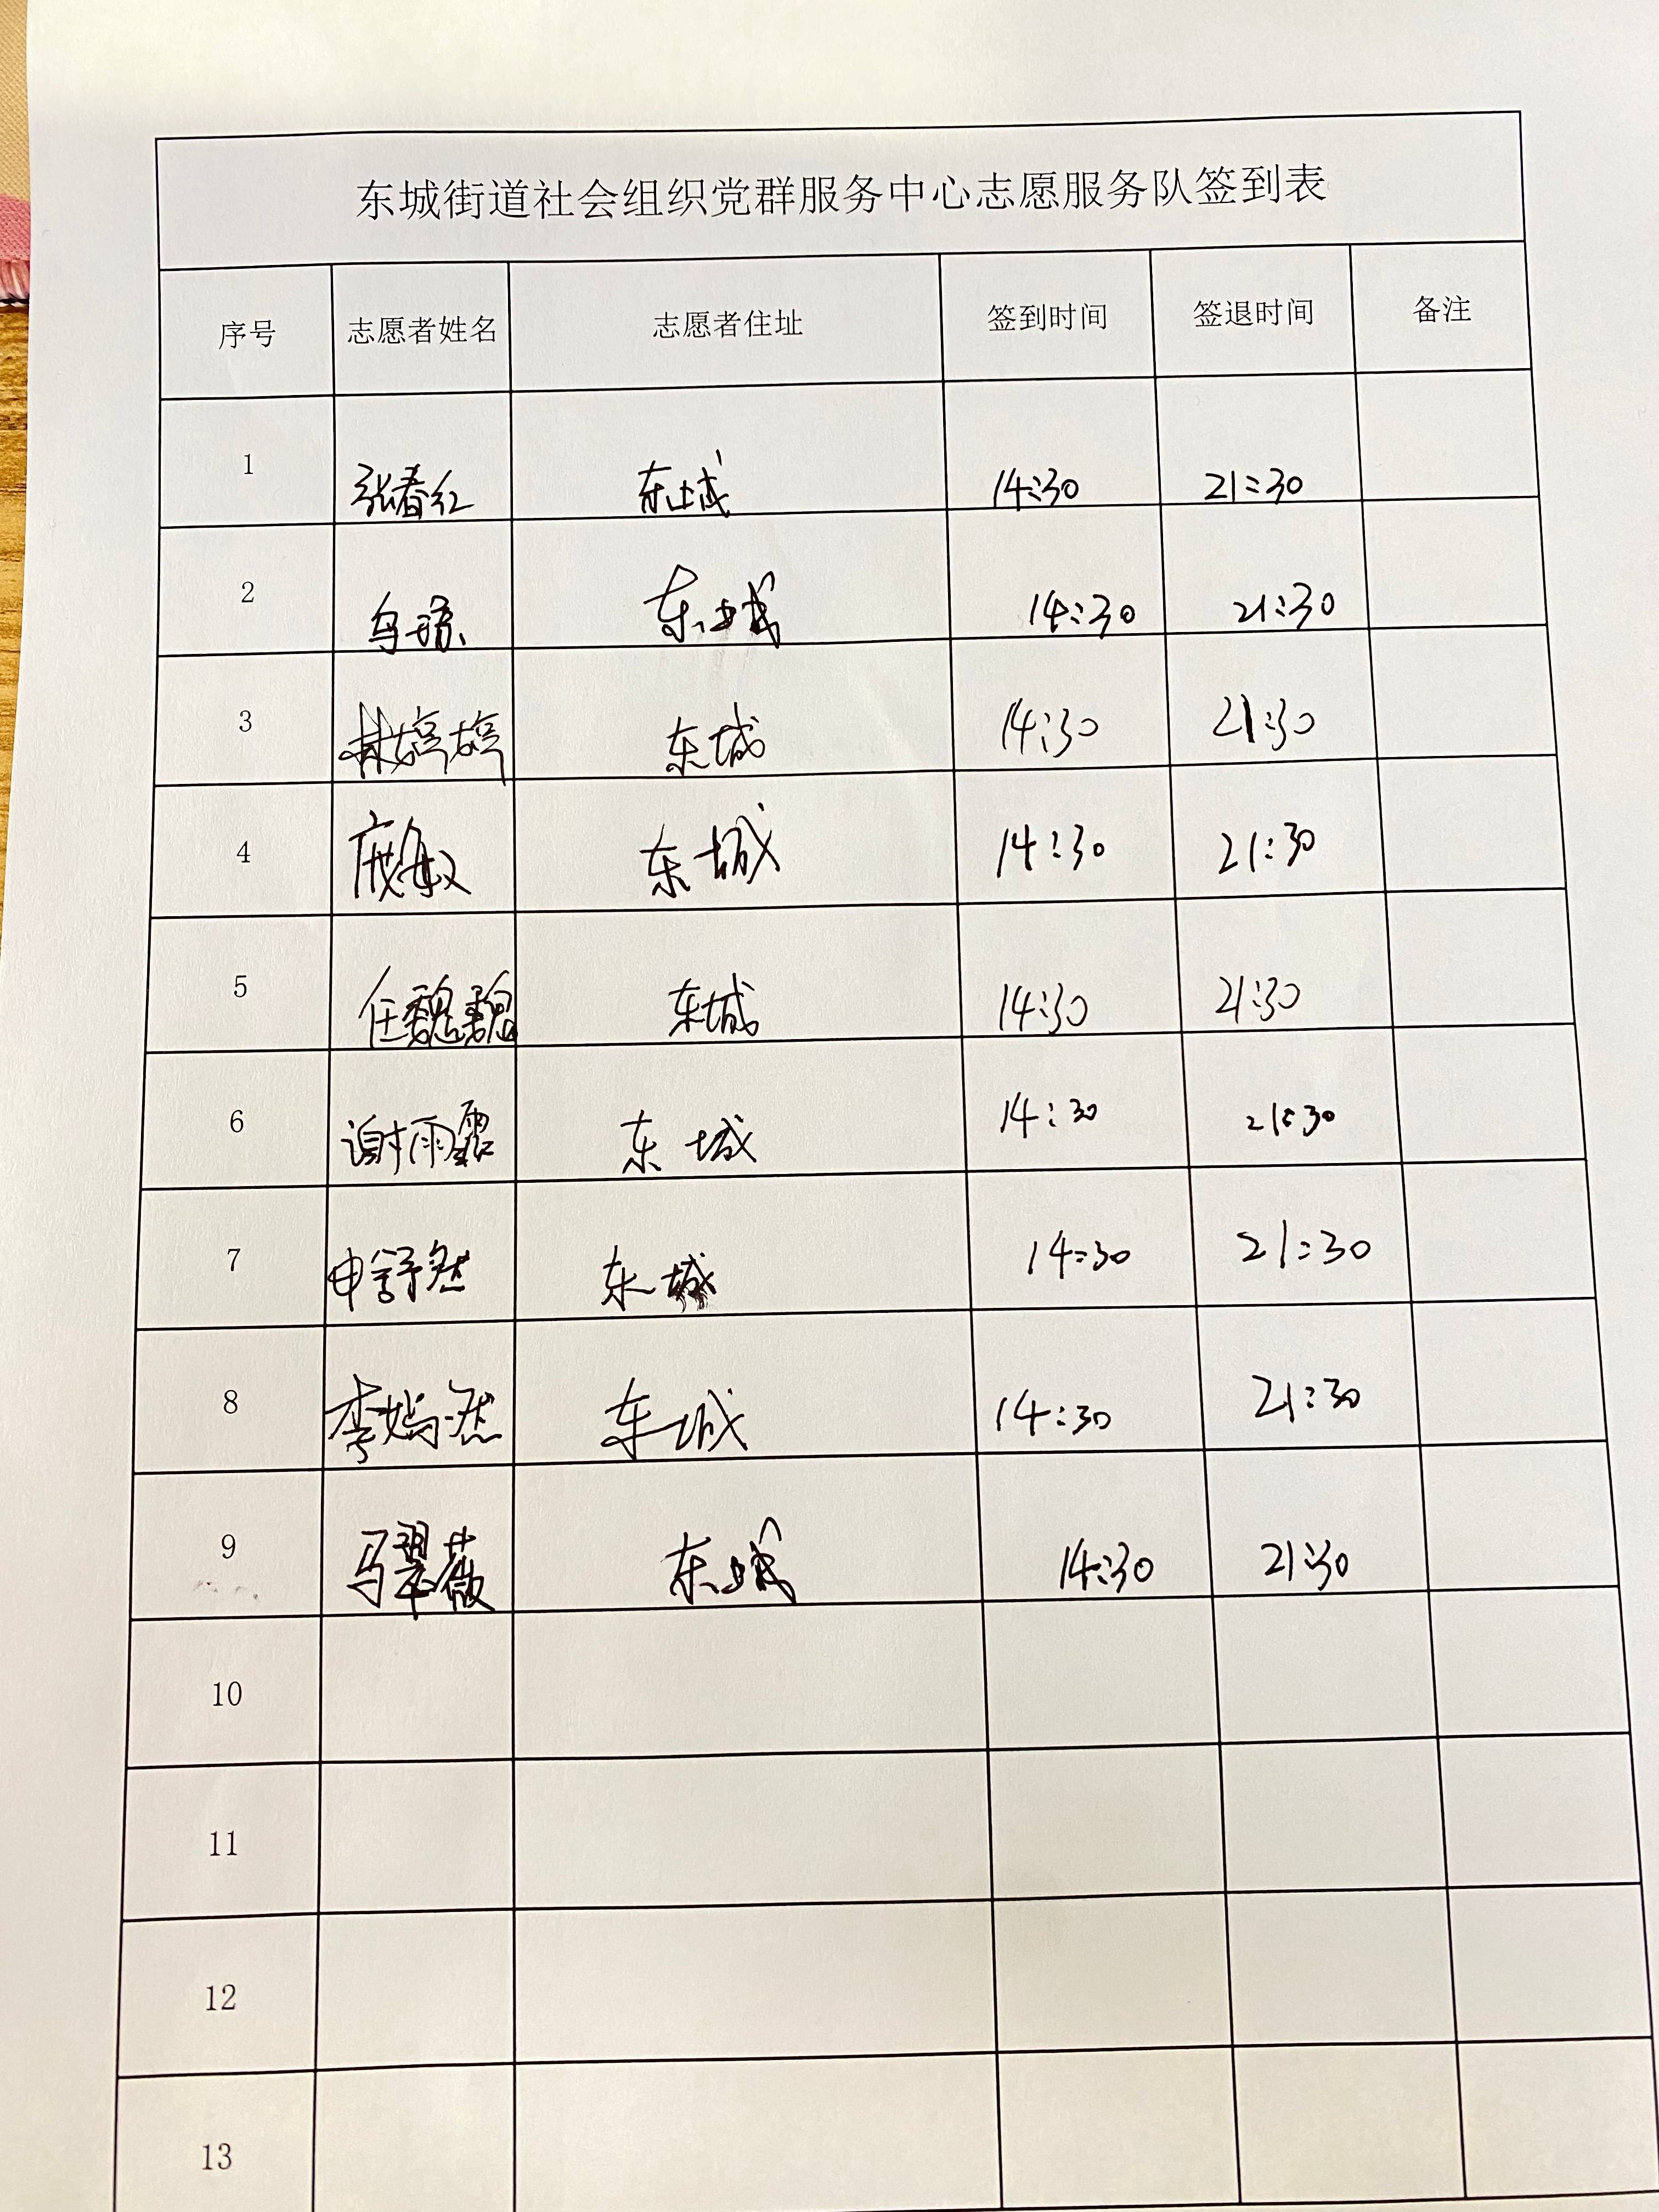 东城街道社会组织党群服务中心志愿服务队签到表
序号 志愿者姓名 志愿者住址 签到时间 签退时间 备注
1 张春红 东城 14:30 21:30
2 东城 14:30 21:30
3 林婷婷 东城 14:30 21:30
4 庞敏 东城 14:30 21:30
5 任魏魏 东城 14:30 21:30
6 谢雨露 东城 14:30 21:30
7 申舒然 东城 14:30 21:30
8 李嫣然 东城 14:30 21:30
9 马翠薇 东城 14:30 21:30
10
11
12
13